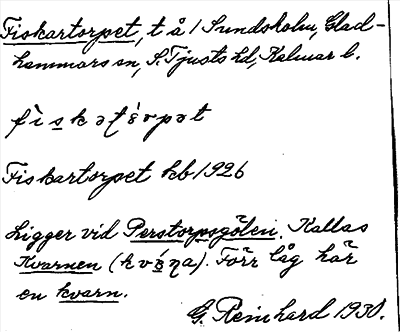 Fiskartorpet, t å 1 Sundsholm, Glad-
hammars sn, S. Tjusts hd, Kalmar l.
Fiskartorpet kb 1926
Ligger vid Perstorpsgölen. Kallas
Kvarnen. Förr låg här
en kvarn.
G. Reinhard 1930.